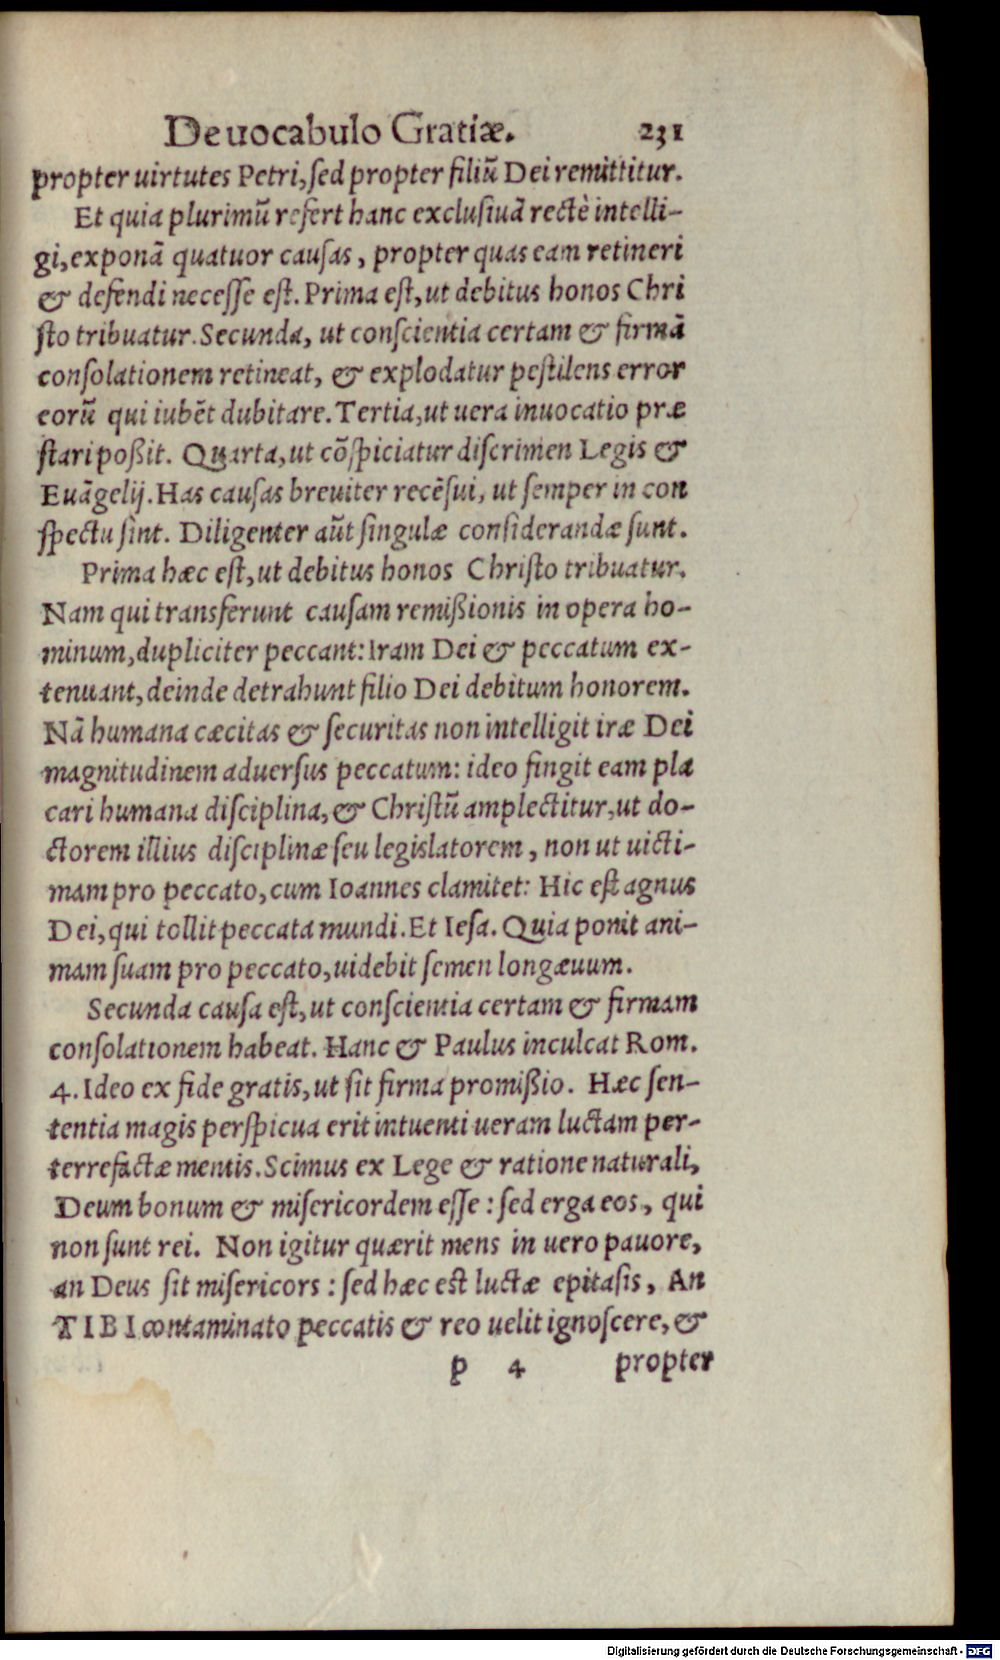 De uocabulo Gratiæ. 231
propter uirtutes Petri, ſed propter filiũ Dei remittitur.
Et quia plurimũ refert hanc excluſiuã rectè intelli-
gi, exponã quatuor cauſas, propter quas eam retineri
& defendi neceſſe eſt. Prima eſt, ut debitus honos Chri
ſto tribuatur. Secunda, ut conſcientia certam & firmã
conſolationem retineat, & explodatur peſtilens error
eorũ qui iubẽt dubitare. Tertia, ut uera inuocatio præ
ſtari poßit. Quarta, ut cõſpiciatur diſcrimen Legis &
Euãgelij. Has cauſas breuiter recẽſui, ut ſemper in con
ſpectu ſint. Diligenter aũt ſingulæ conſiderandæ ſunt.
Prima hæc eſt, ut debitus honos Chriſto tribuatur.
Nam qui transferunt cauſam remißionis in opera ho-
minum, dupliciter peccant: Iram Dei & peccatum ex-
tenuant, deinde detrahunt filio Dei debitum honorem.
Nã humana cæcitas & ſecuritas non intelligit iræ Dei
magnitudinem aduerſus peccatum: ideo fingit eam pla
cari humana diſciplina, & Chriſtũ amplectitur, ut do-
ctorem illius diſciplinæ ſeu legislatorem, non ut uicti-
mam pro peccato, cum Ioannes clamitet: Hic eſt agnus
Dei, qui tollit peccata mundi. Et Ieſa. Quia ponit ani-
mam ſuam pro peccato, uidebit ſemen longæuum.
Secunda cauſa eſt, ut conſcientia certam & firmam
conſolationem habeat. Hanc & Paulus inculcat Rom.
4. Ideo ex fide gratis, ut ſit firma promißio. Hæc ſen-
tentia magis perſpicua erit intuenti ueram luctam per-
terrefactæ mentis. Scimus ex Lege & ratione naturali,
Deum bonum & miſericordem eſſe: ſed erga eos, qui
non ſunt rei. Non igitur quærit mens in uero pauore,
an Deus ſit miſericors: ſed hæc eſt luctæ epitaſis, An
TIBI contaminato peccatis & reo uelit ignoſcere, &
p 4 propter
Digitalisierung gefördert durch die Deutsche Forschungsgemeinschaft - DFG